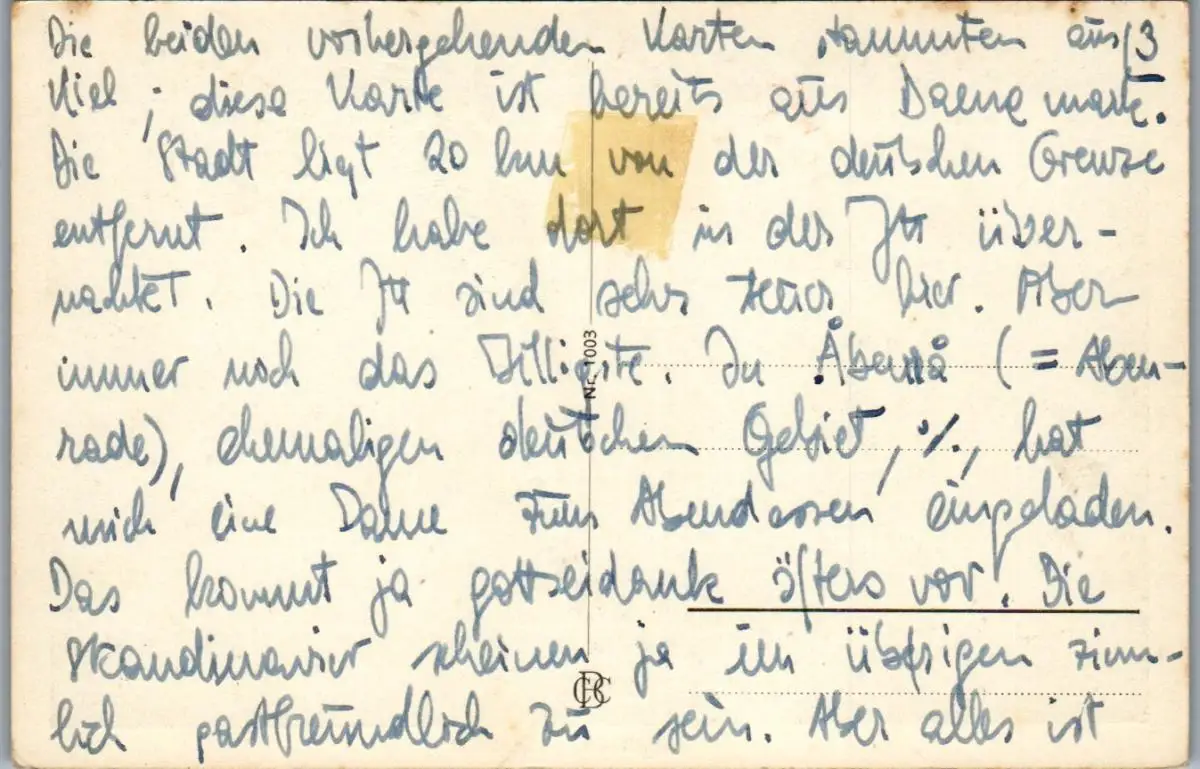 Die beiden vorhergehenden Karten stammten aus (3
Kiel; diese Karte ist bereits aus Daenemark.
Die Stadt ligt 20 km von der deutschen Grenze
entfernt. Ich habe dort in der JH über-
nachtet. Die JH sind sehr teuer hier. Aber
immer noch das Billigste. In Åbenrå (= Aben-
rade), ehemaligen deutschen Gebiet, ·/·, hat
mich eine Dame zum Abendessen eingeladen.
Das kommt ja gottseidank öfters vor! Die
Skandinavier scheinen ja im übrigen ziem-
lich gastfreundlich zu sein. Aber alles ist
Nr. 1003